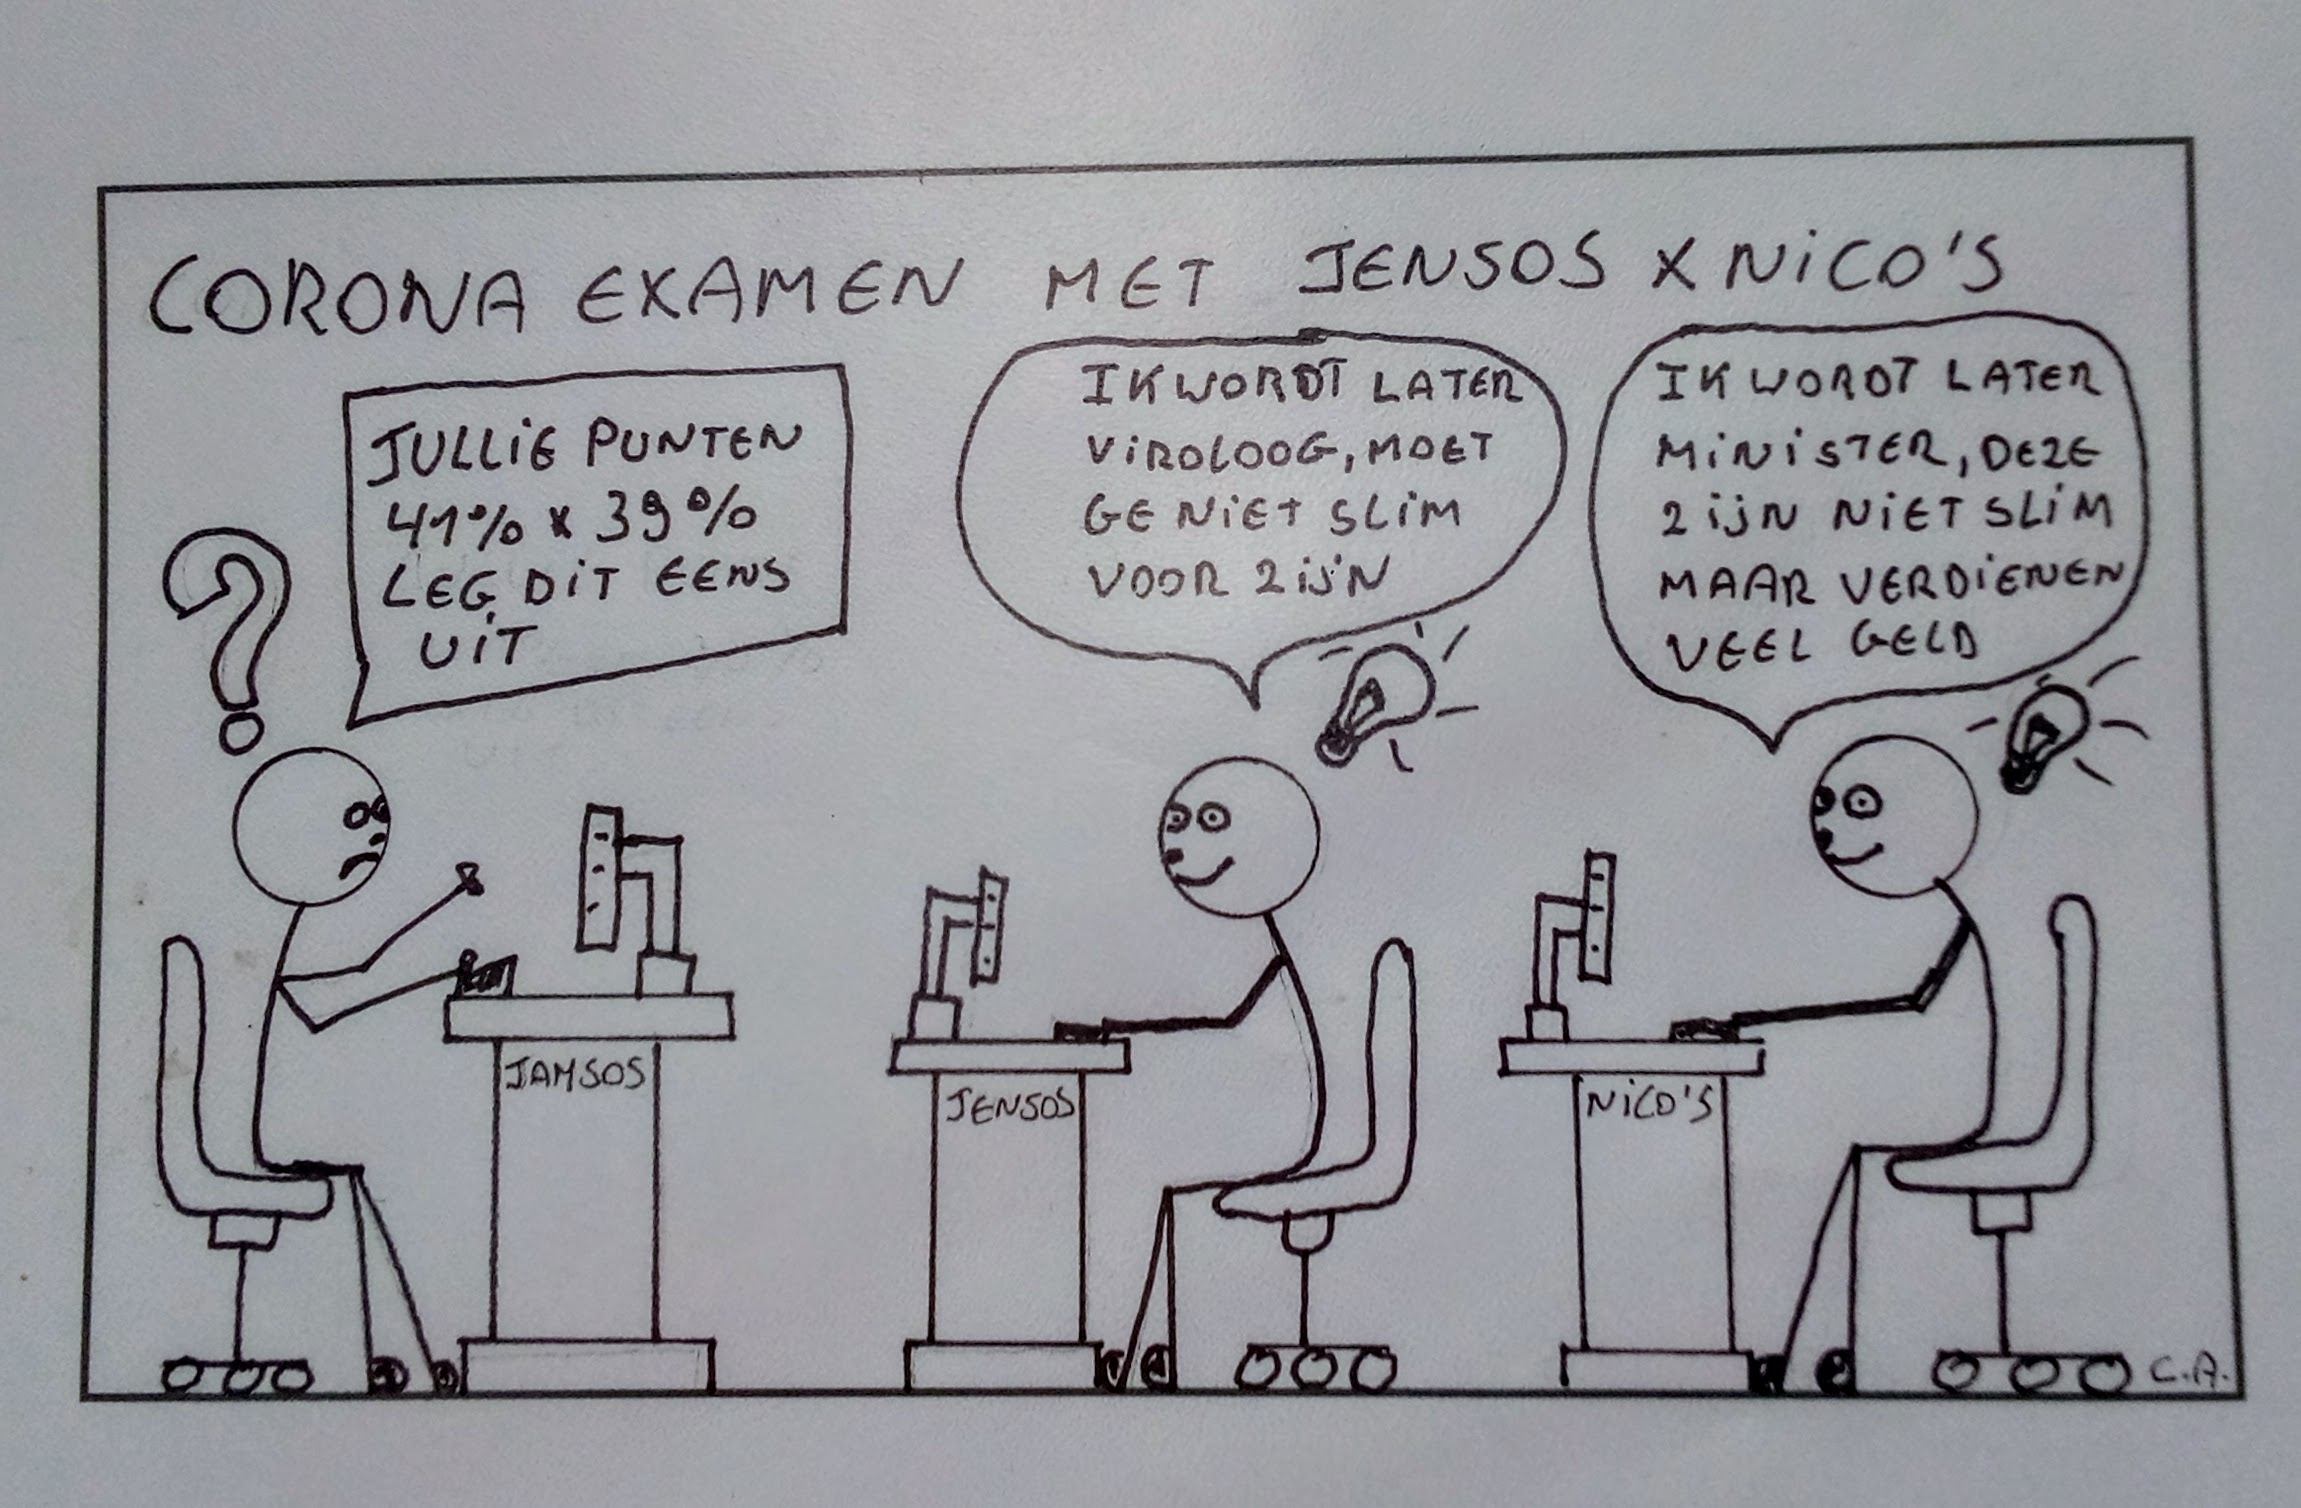 CORONA EXAMEN MET JENSOS X NiCO'S
JULLiE PUNTEN
41% x 39%
LEG DiT EENS
UiT
IK WORDT LATER
ViROLOOG, MOET
GE NiET SLiM
VOOR ZijN
IK WORDT LATER
MiNiSTER, DEZE
ZijN NiET SLiM
MAAR VERDiENEN
VEEL GELD
JAMSOS
JENSOS
NiCO'S
C.A.